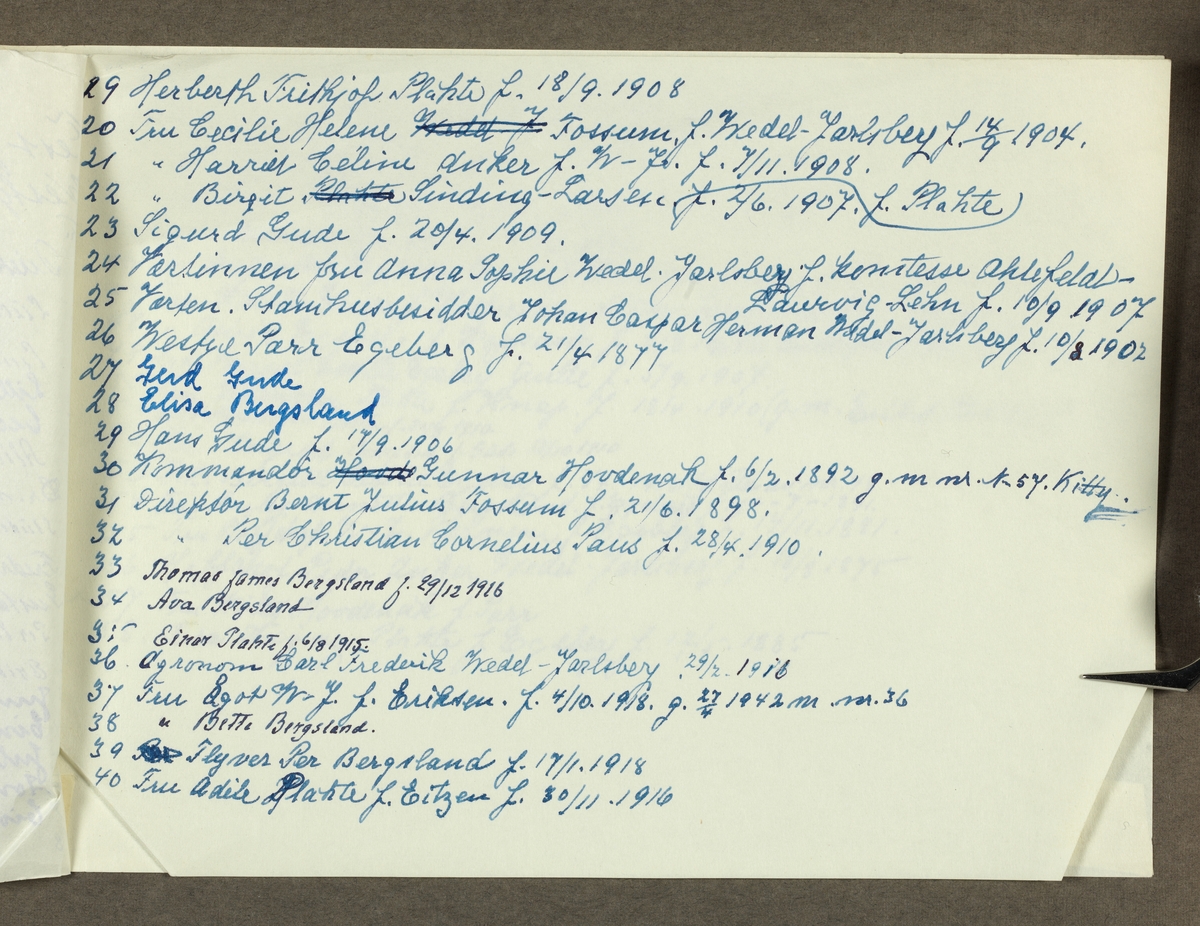 29 Herberth Frithjof Plahte f. 18/9. 1908
20 Fru Cecilie Helene Wedel-J Fossum, f. Wedel-Jarlsberg f. 14/9 1904.
21 " Harriet Celine Anker f. W-J. f. 7/11. 1908.
22 " Birgit Plahte Sinding-Larsen (f. 2/6. 1907. f. Plahte)
23 Sigurd Gude f. 20/4. 1909.
24 Værtinnen fru Anna Sophie Wedel-Jarlsberg f. komtesse Ahlefeldt-
Laurvig-Lehn f. 10/9 1907
25 Værten. Stamhusbesidder Johan Caspar Herman Wedel-Jarlsberg f. 10/2 1902
26 Westye Parr Egeberg f. 21/4 1877
27 Gerd Gude
28 Elisa Bergsland
29 Hans Gude f. 17/9. 1906
30 Kommandør Hovde Gunnar Hovdenak f. 6/2. 1892 g. m nr. 57. Kitty.
31 Direktør Bernt Julius Fossum f. 21/6. 1898.
32 " Per Christian Cornelius Paus f. 28/4. 1910.
33 Thomas James Bergsland f. 29/12 1916
34 Ava Bergsland
35 Einar Plahte f. 6/8 1915.
36. Agronom Carl Frederik Wedel-Jarlsberg 29/2. 1916
37 Fru Ågot W-J. f. Eriksen. f. 4/10. 1918. g. 27/4 1942 m. nr. 36
38 " Bette Bergsland.
39 Flyver Per Bergsland f. 17/1. 1918
40 Fru Adele Plahte f. Eitzen f. 30/11. 1916